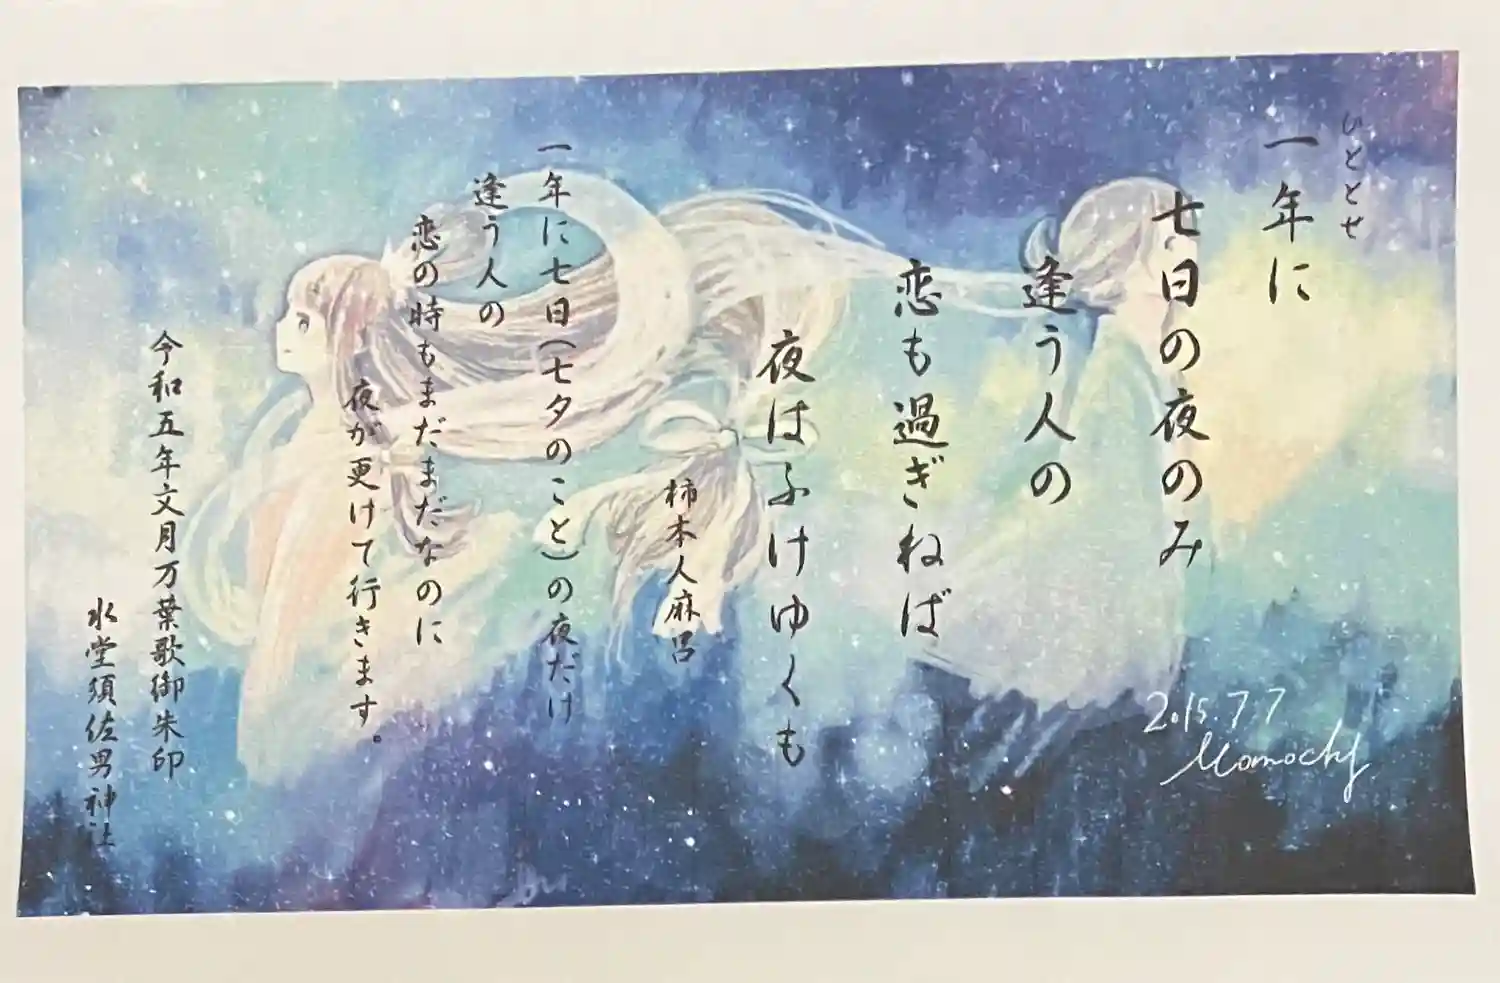 ひととせ
一年に
七日の夜のみ
逢う人の
恋も過ぎねば
夜はふけゆくも
柿本人麻呂
一年に七日(七夕のこと)の夜だけ
逢う人の
恋の時もまだまだなのに
夜が更けて行きます。
令和五年文月万葉歌御朱印
水堂須佐男神社
2015.7.7